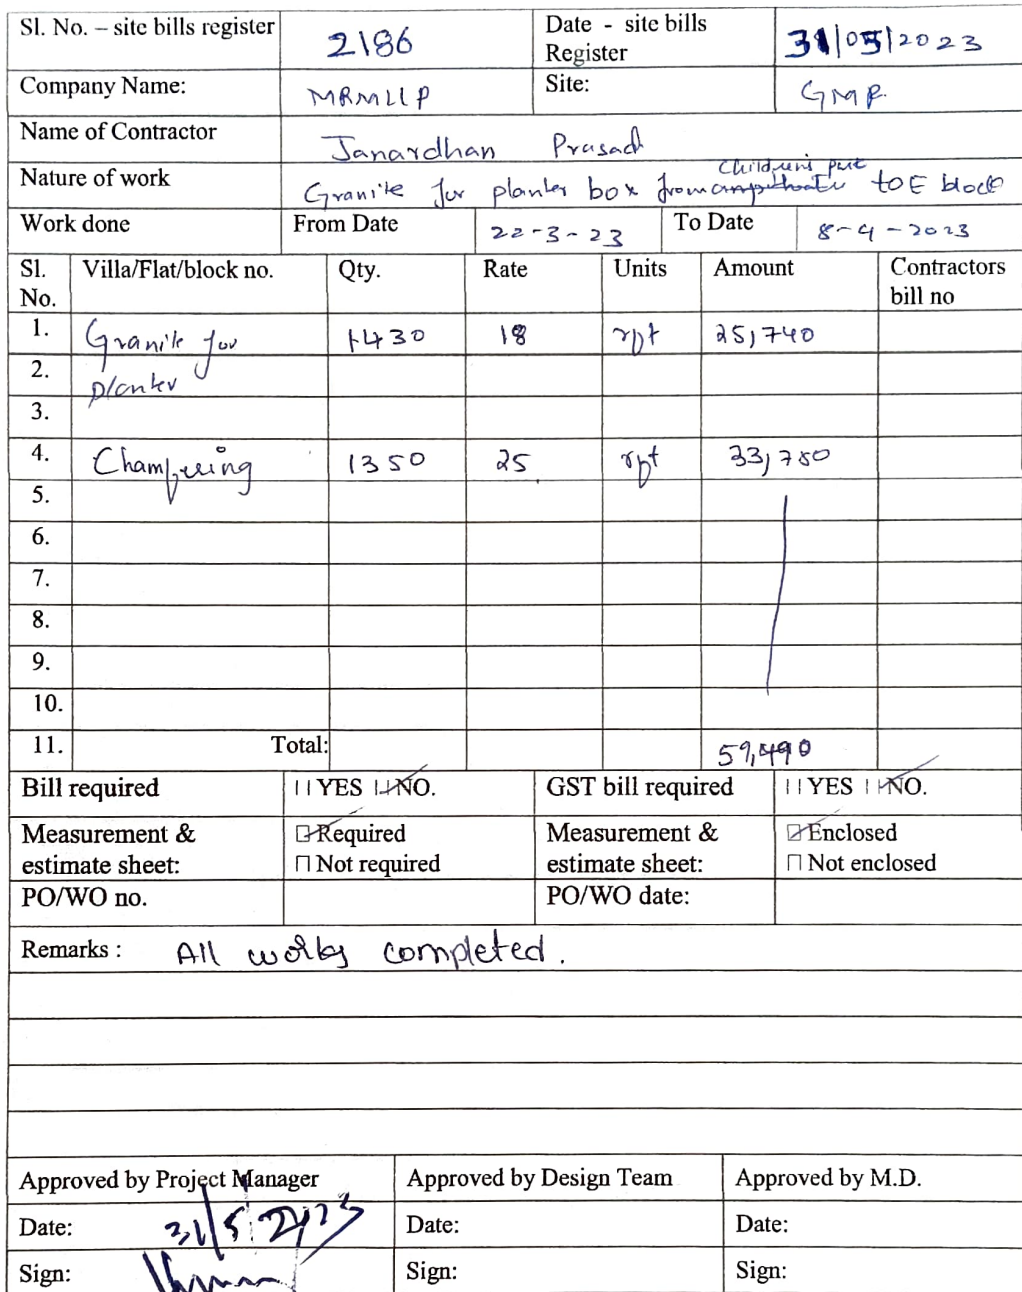 Sl. No. – site bills register 2186 Date - site bills Register 31/05/2023
Company Name: MRMLLP Site: GMR
Name of Contractor Janardhan Prasad
Nature of work Granite for planter box from children's to E block
Work done From Date 22-3-23 To Date 8-4-2023
Sl. No. Villa/Flat/block no. Qty. Rate Units Amount Contractors bill no
1. Granite for 1430 18 rft 25,740
2. planter
3.
4. Champering 1350 25 rft 33,750
5.
6.
7.
8.
9.
10.
11. Total: 59,490
Bill required YES NO. GST bill required YES NO.
Measurement & estimate sheet: Required Measurement & estimate sheet: Enclosed
Not required Not enclosed
PO/WO no. PO/WO date:
Remarks : All works completed.
Approved by Project Manager Approved by Design Team Approved by M.D.
Date: 31/5/2023 Date: Date:
Sign: Sign: Sign: